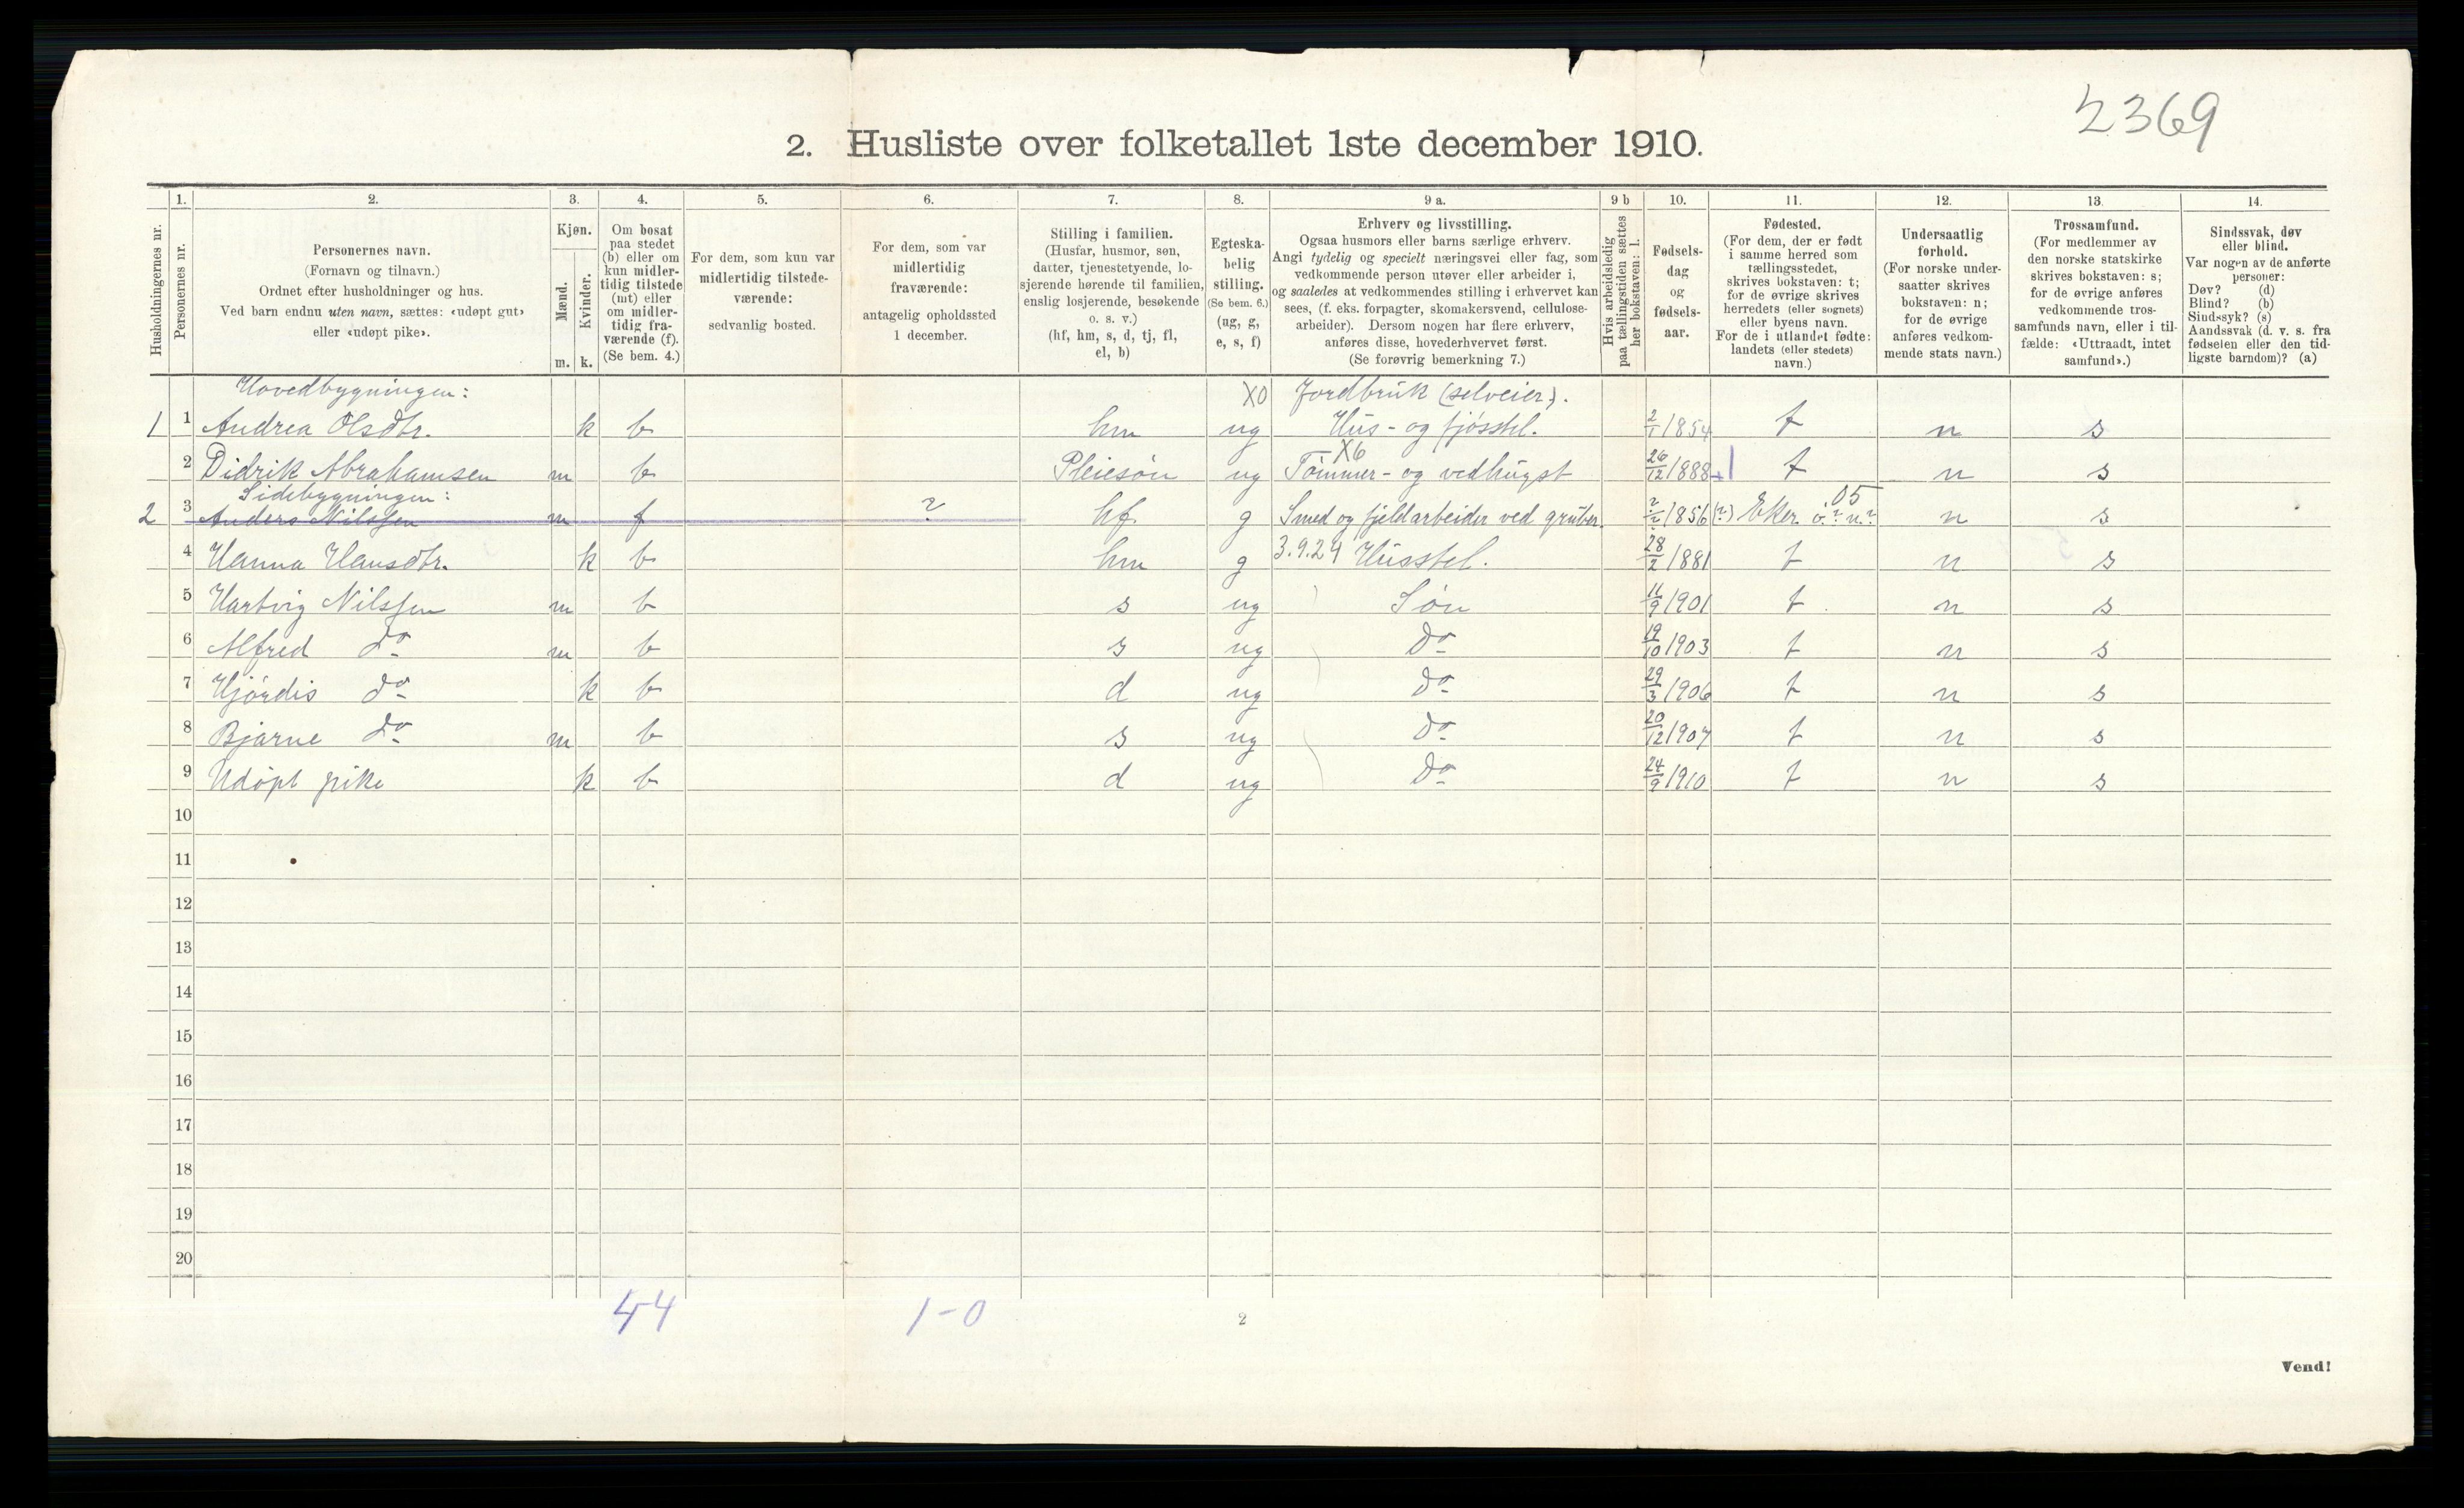 2369
2. Husliste over folketallet 1ste december 1910.
Husholdningernes nr.
1. Personernes nr.
2. Personernes navn.
(Fornavn og tilnavn.)
Ordnet efter husholdninger og hus.
Ved barn endnu uten navn, sættes: «udøpt gut»
eller «udøpt pike».
3. Kjøn.
Mænd. m.
Kvinder. k.
4. Om bosat
paa stedet
(b) eller om
kun midler-
tidig tilstede
(mt) eller
om midler-
tidig fra-
værende (f).
(Se bem. 4.)
5. For dem, som kun var
midlertidig tilstede-
værende:
sedvanlig bosted.
6. For dem, som var
midlertidig
fraværende:
antagelig opholdssted
1 december.
7. Stilling i familien.
(Husfar, husmor, søn,
datter, tjenestetyende, lo-
sjerende hørende til familien,
enslig losjerende, besøkende
o. s. v.)
(hf, hm, s, d, tj, fl,
el, b)
8. Egteska-
belig
stilling.
(Se bem. 6.)
(ug, g,
e, s, f)
9 a. Erhverv og livsstilling.
Ogsaa husmors eller barns særlige erhverv.
Angi tydelig og specielt næringsvei eller fag, som
vedkommende person utøver eller arbeider i,
og saaledes at vedkommendes stilling i erhvervet kan
sees, (f. eks. forpagter, skomakersvend, cellulose-
arbeider). Dersom nogen har flere erhverv,
anføres disse, hovederhvervet først.
(Se forøvrig bemerkning 7.)
9 b Hvis arbeidsledig
paa tællingstiden sættes
her bokstaven: l.
10. Fødsels-
dag
og
fødsels-
aar.
11. Fødested.
(For dem, der er født
i samme herred som
tællingsstedet,
skrives bokstaven: t;
for de øvrige skrives
herredets (eller sognets)
eller byens navn.
For de i utlandet fødte:
landets (eller stedets)
navn.)
12. Undersaatlig
forhold.
(For norske under-
saatter skrives
bokstaven: n;
for de øvrige
anføres vedkom-
mende stats navn.)
13. Trossamfund.
(For medlemmer av
den norske statskirke
skrives bokstaven: s;
for de øvrige anføres
vedkommende tros-
samfunds navn, eller i til-
fælde: «Uttraadt, intet
samfund».)
14. Sindssvak, døv
eller blind.
Var nogen av de anførte
personer:
Døv? (d)
Blind? (b)
Sindssyk? (s)
Aandssvak (d. v. s. fra
fødselen eller den tid-
ligste barndom)? (a)
Hovedbygningen: X0 Jordbruk (selveier).
1 1 Andrea Olsdtr. k b hm ug Hus- og fjøsstel. 2/1 1854 t n s
X6
2 Didrik Abrahamsen m b Pleiesøn ug Tømmer- og vedhugst 26/12 1888 t n s
Sidebygningen: 05
2 3 Anders Nilssen m f ? hf g Smed og fjeldarbeider ved gruber. ?/? 1856 (?) Eker ø.? n.? n s
4 Hanna Hansdtr. k b hm g 3.9.24 Husstel. 28/2 1881 t n s
5 Hartvig Nilssen m b s ug Søn 11/9 1901 t n s
6 Alfred do m b s ug do 19/10 1903 t n s
7 Hjørdis do k b d ug do 29/3 1906 t n s
8 Bjarne do m b s ug do 20/12 1907 t n s
9 Udøpt pike k b d ug do 24/9 1910 t n s
10
11
12
13
14
15
16
17
18
19
20
44 1-0
2
Vend!